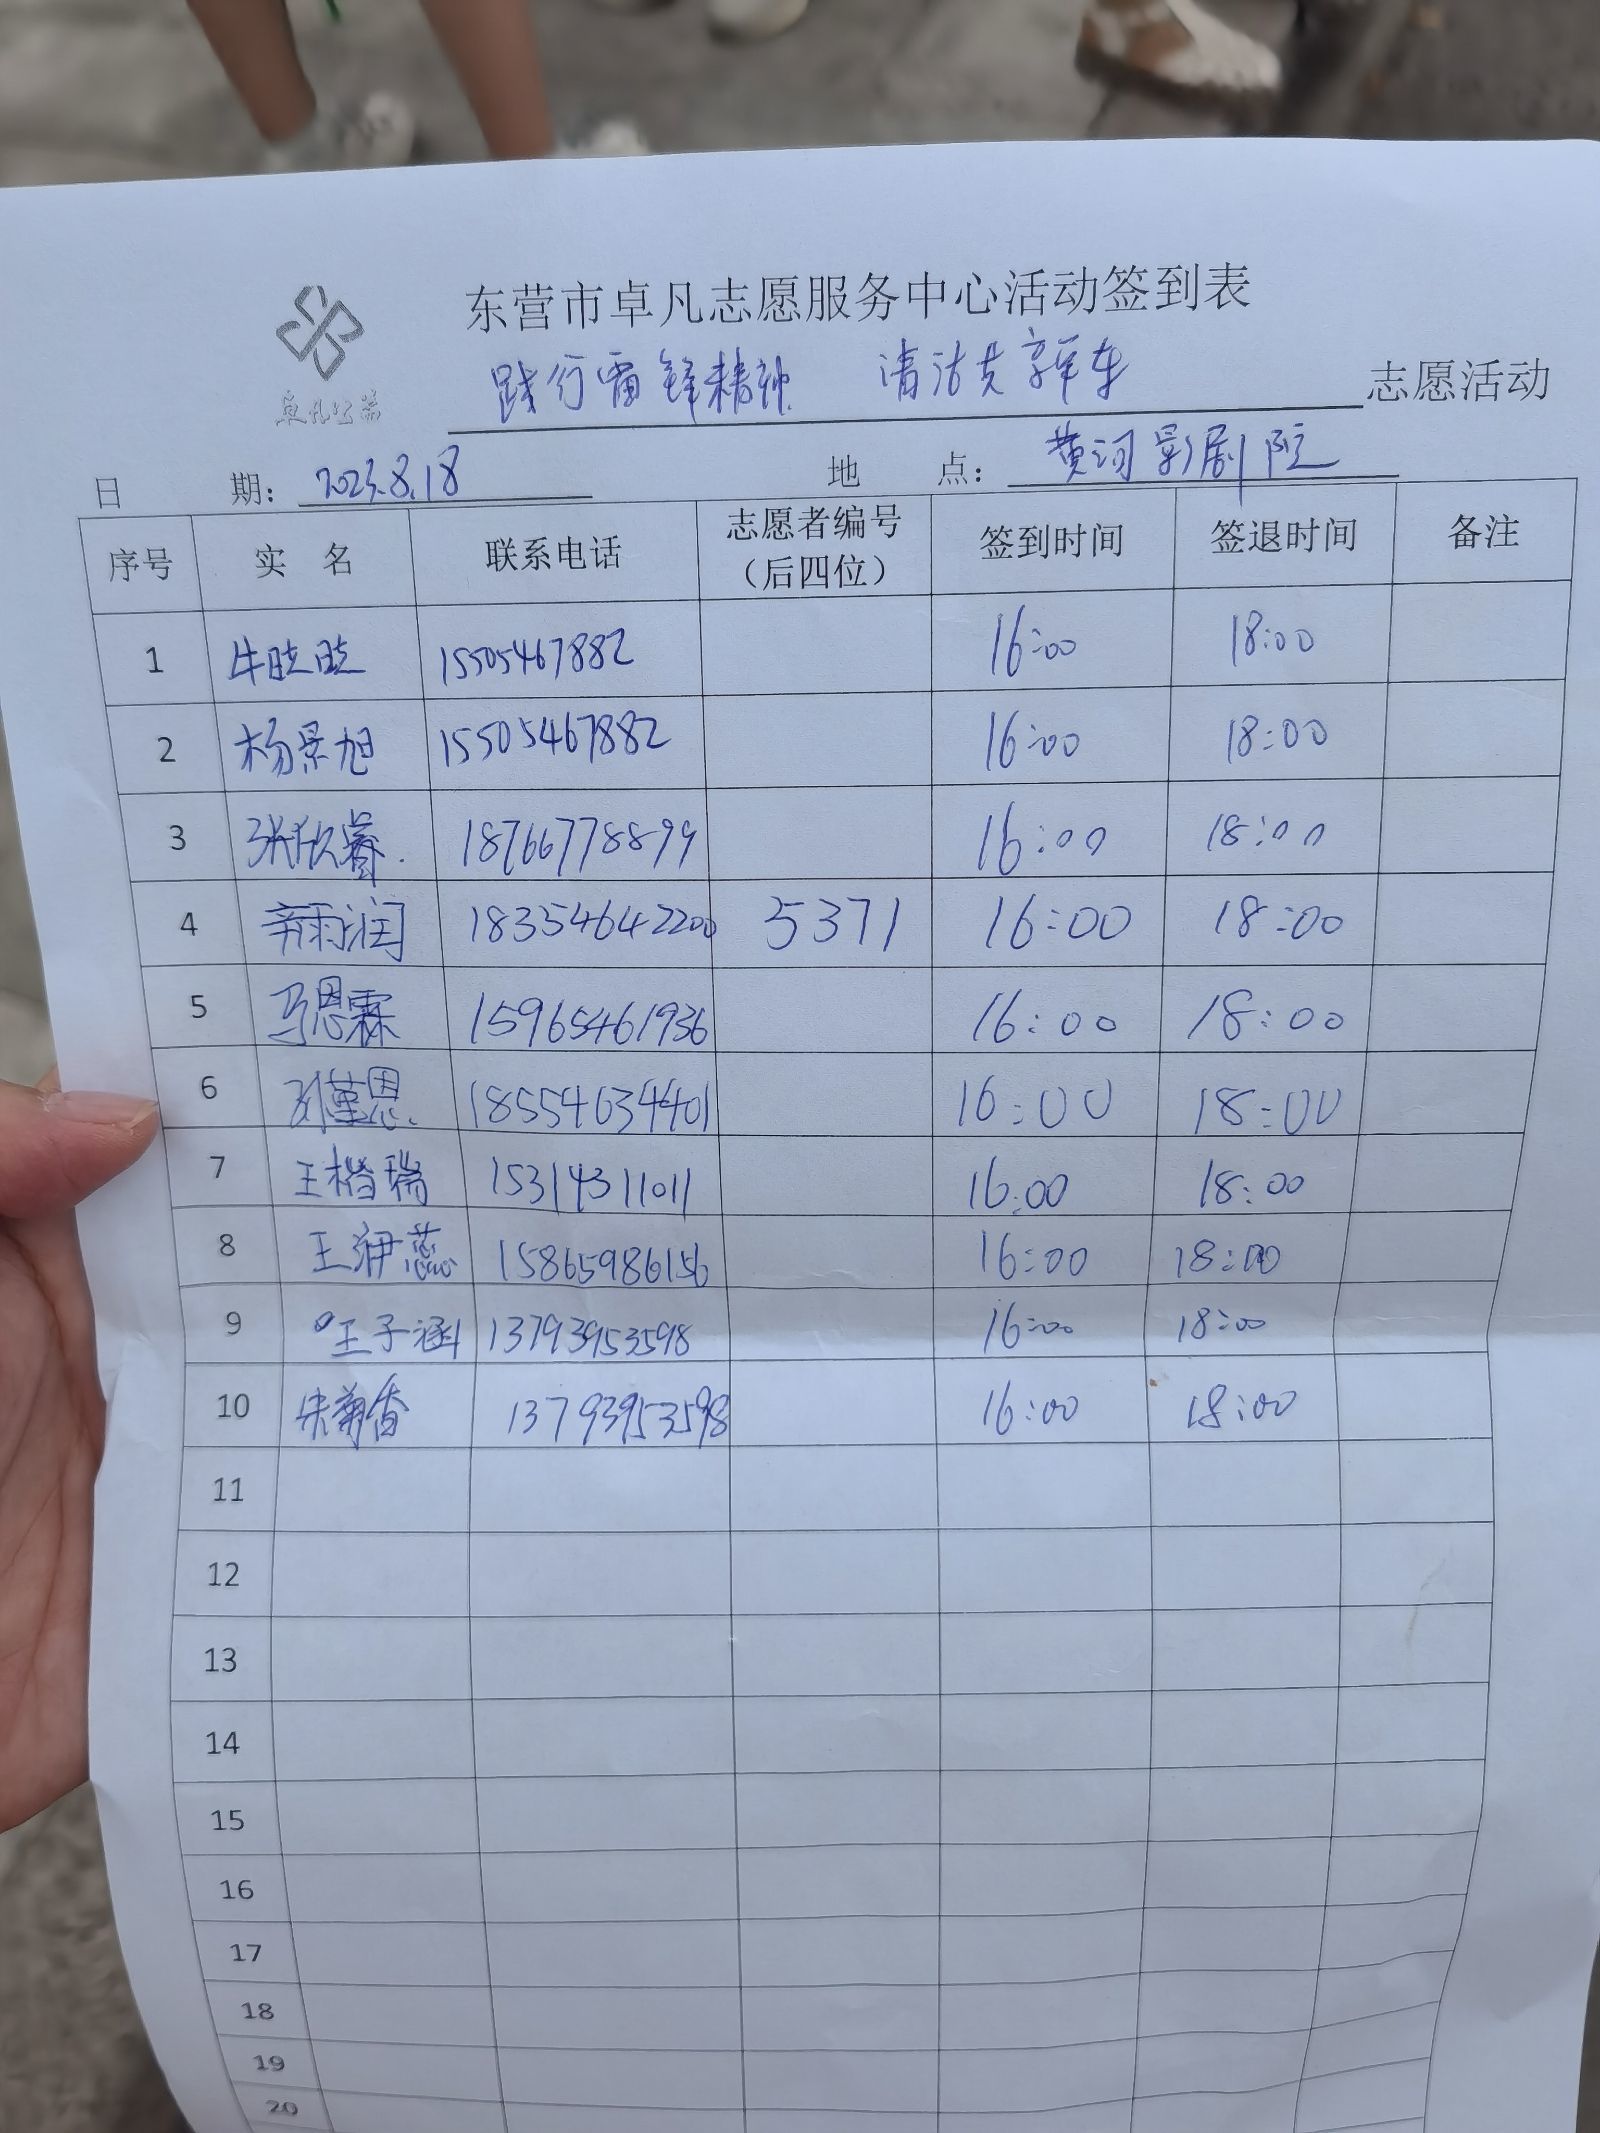 东营市卓凡志愿服务中心活动签到表
践行雷锋精神 清洁共享单车 志愿活动
卓凡公益
日 期: 2023.8.18 地 点: 黄河影剧院
序号 实 名 联系电话 志愿者编号（后四位） 签到时间 签退时间 备注
1 牛晓晓 15505467882 16:00 18:00
2 杨景旭 15505467882 16:00 18:00
3 张欣睿 18766778899 16:00 18:00
4 雨润 18354642200 5371 16:00 18:00
5 马恩霖 15965461936 16:00 18:00
6 刘堇恩 18554634401 16:00 18:00
7 王楷瑞 15314311011 16:00 18:00
8 王蕊 15865986156 16:00 18:00
9 王子涵 13793953598 16:00 18:00
10 朱菊香 13793953598 16:00 18:00
11
12
13
14
15
16
17
18
19
20